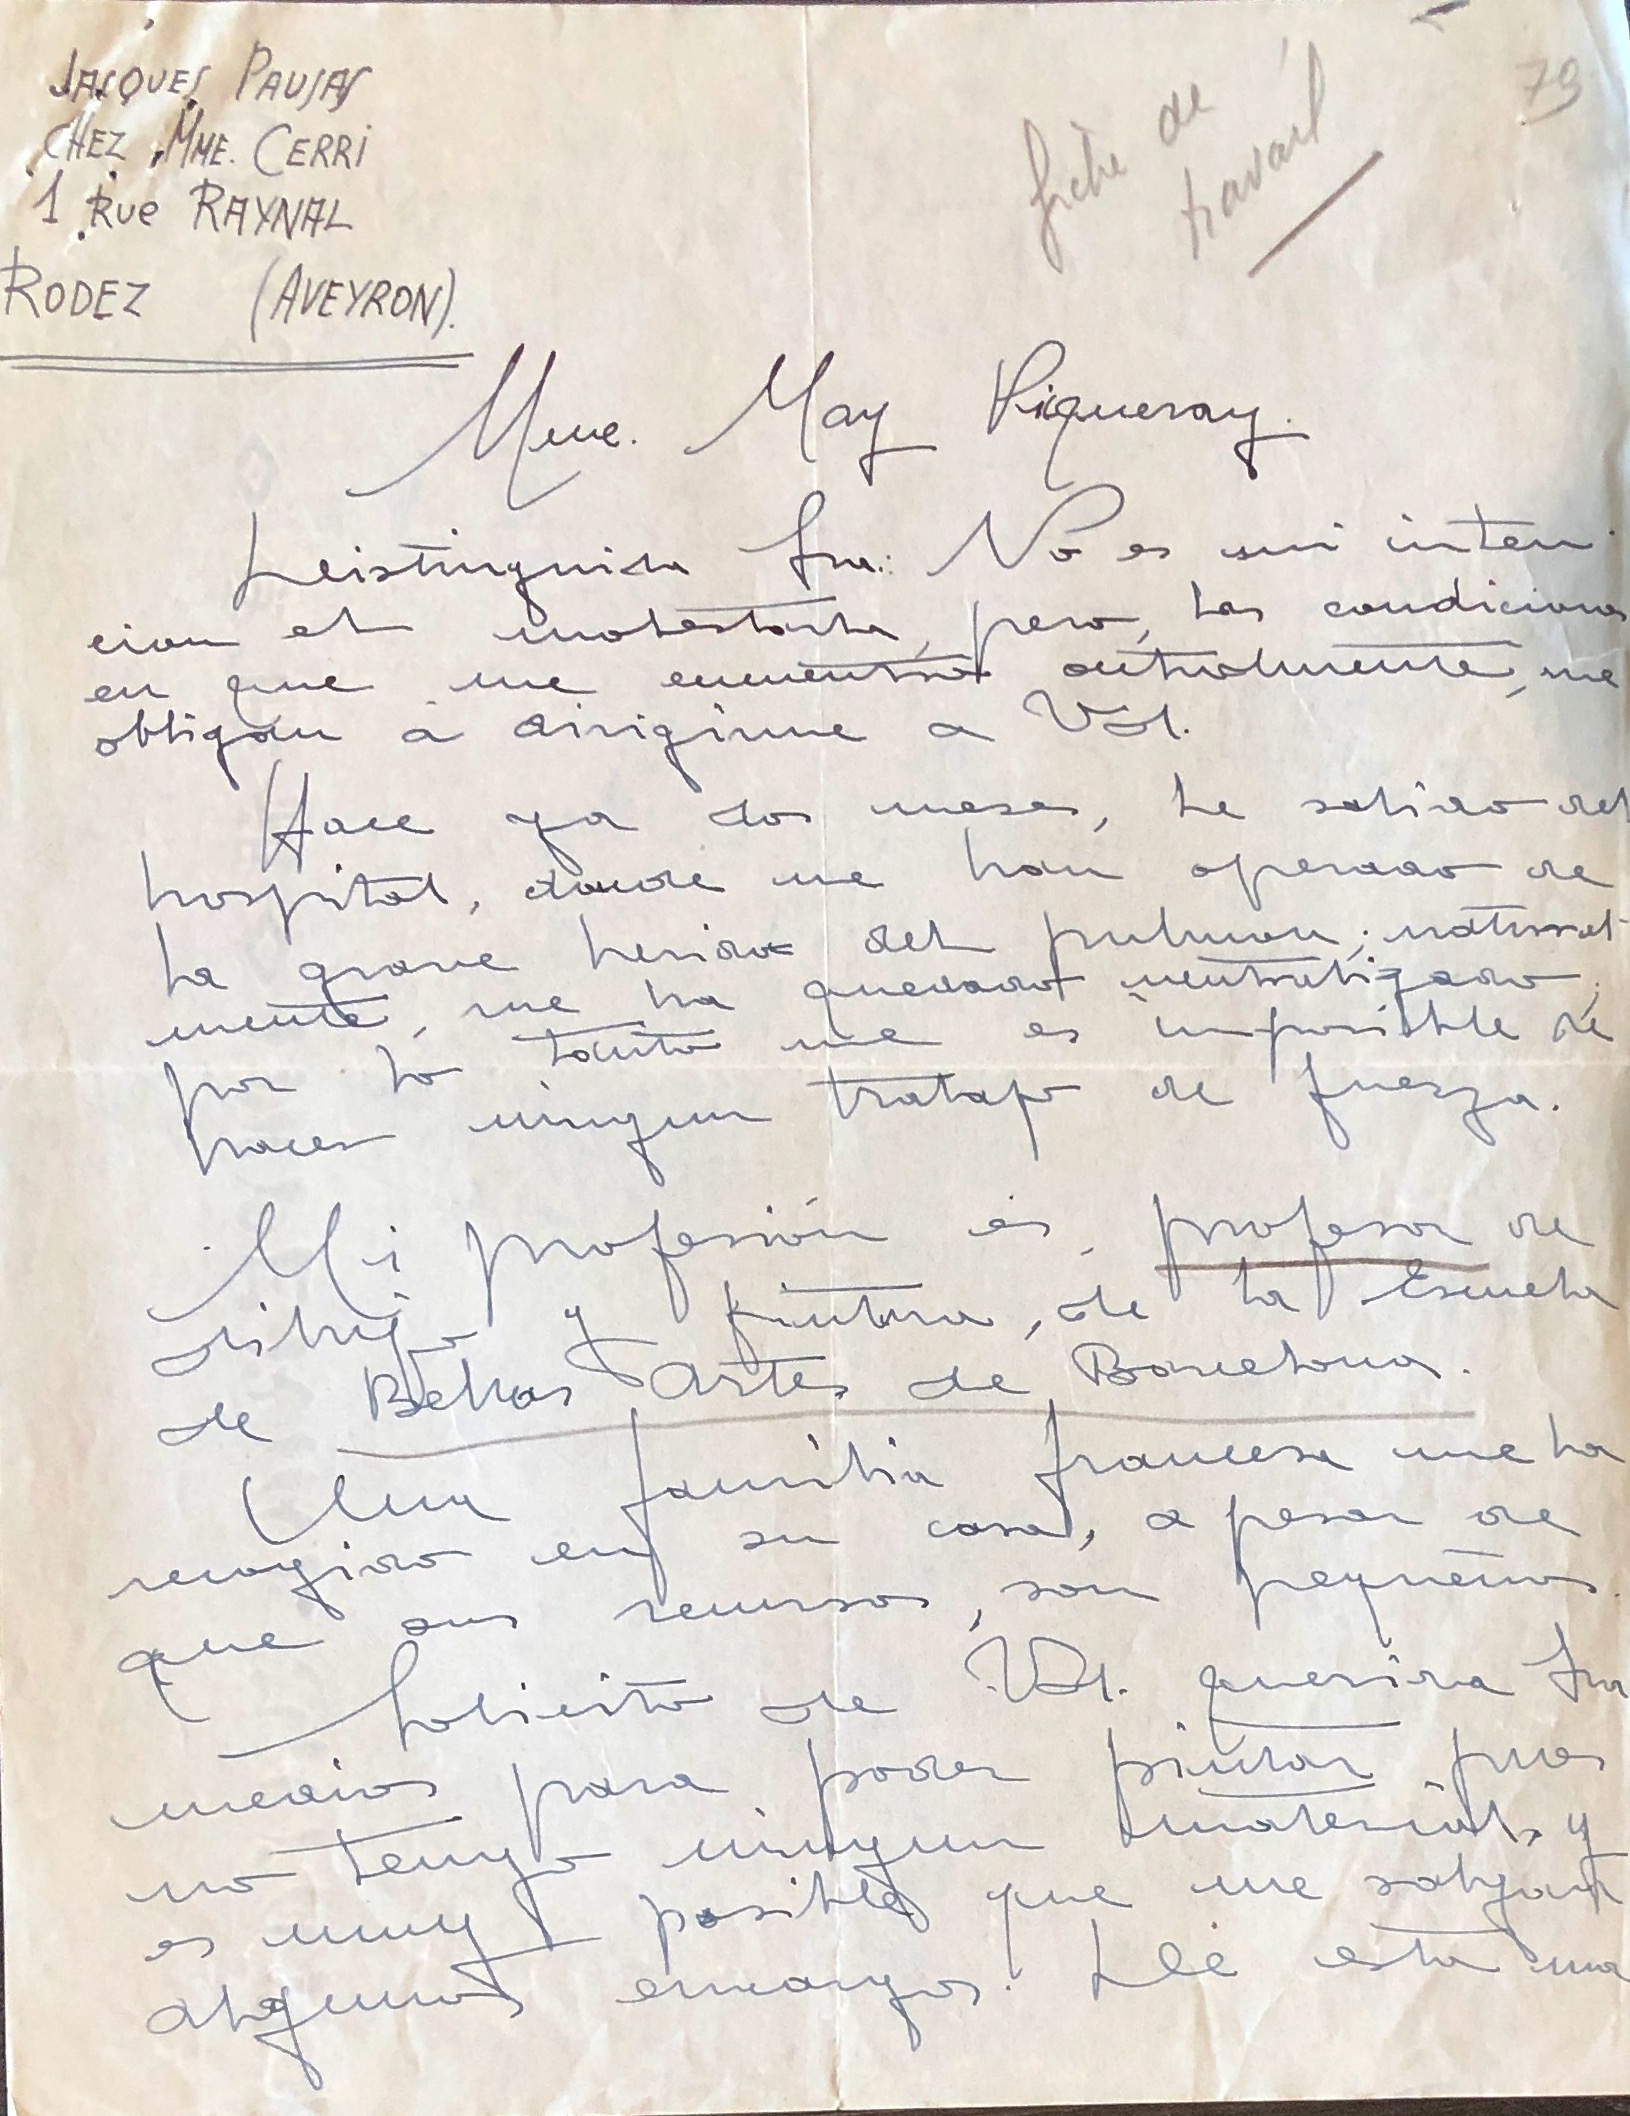 JACQUES PAUSAS
CHEZ MME. CERRI
1 Rue RAYNAL
RODEZ (AVEYRON).
fiche de
travail
79
Mme. May Piqueray.
Distinguida Sra: No es mi inten
cion el molestarla, pero, las condiciones
en que me encuentro actualmente, me
obligan à dirigirme a Vd.
Hace ya dos meses, he salido del
hospital, donde me han operado de
la grave herida del pulmon; natural
mente, me ha quedado neutralizado;
por lo tanto me es imposible de
hacer ningun trabajo de fuerza.
Mi profesión es, profesor de
dibujo y pintura, de la Escuela
de Bellas Artes de Barcelona.
Una familia francesa me ha
recogido en su casa, a pesar de
que sus recursos, son pequeños.
Solicito de Vd. querida Sra
medios para poder pintar pues
no tengo ningun material, y
es muy posible que me salgan
algunos encargos. Lle esta una